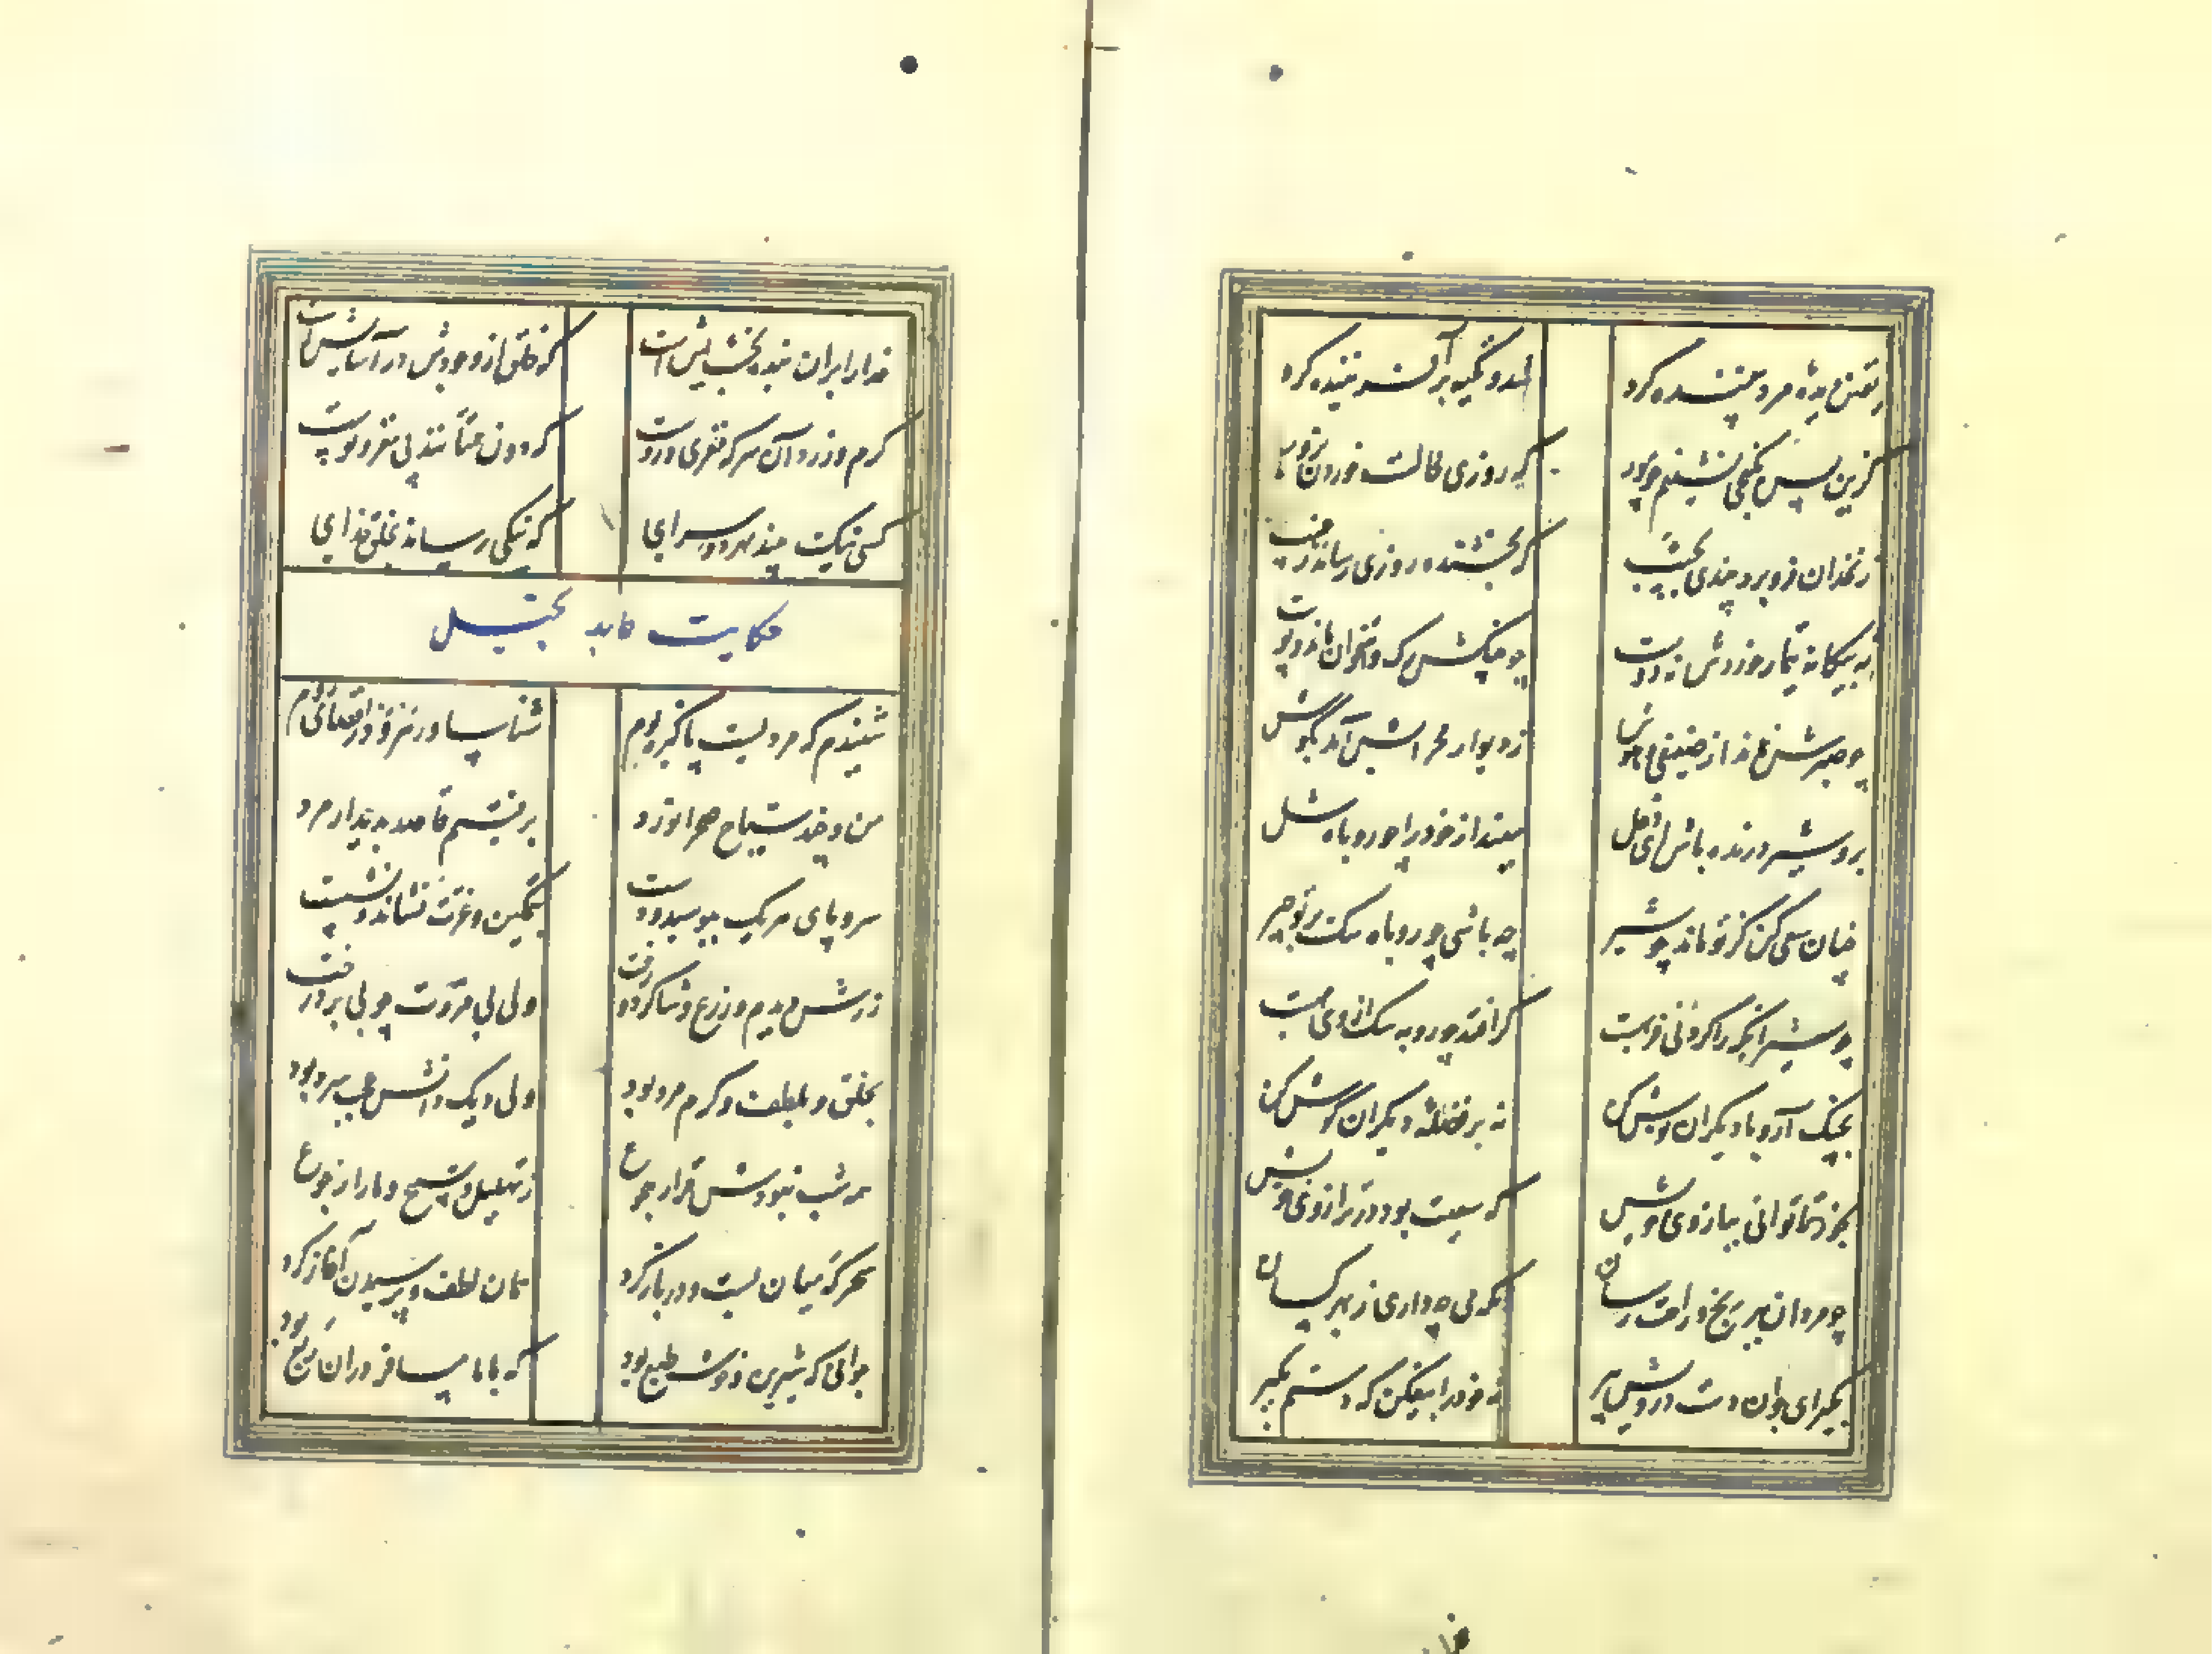 یقین دیده مرد بیننده کرد
شد و تکیه بر آفریننده کرد
کزین پس بکنجی نشینم چو مور
که روزی نخوردند پیلان بزور
زنخدان فرو برد چندی بجیب
که بخشنده روزی رساند ز غیب
نه بیگانه تیمار خوردش نه دوست
چو چنگش رگ و استخوان ماند و پوست
چو صبرش نماند از ضعیفی و هوش
ز دیوار محرابش آمد بگوش
برو شیر درنده باش ای دغل
مینداز خود را چو روباه شل
چنان سعی کن کز تو ماند چو شیر
چه باشی چو روبه بوامانده سیر
چو شیر آنکه را گردنی فربهست
گر افتد چو روبه سگ از وی بهست
بچنگ آر و با دیگران نوش کن
نه بر فضله دیگران گوش کن
بخور تا توانی ببازوی خویش
که سعیت بود در ترازوی خویش
چو مردان ببر رنج و راحت رسان
مخنث خورد دسترنج کسان
بگیر ای جوان دست درویش پیر
نه خود را بیفکن که دستم بگیر
خدا را بر آن بنده بخشایش است
که خلق از وجودش در آسایش است
کرم ورزد آن سر که مغزی دروست
که دون همتانند بی مغز و پوست
کسی نیک بیند بهر دو سرای
که نیکی رساند بخلق خدای
حکایت عابد بخیل
شنیدم که مردیست پاکیزه بوم
شناسا و رهرو در اقصای روم
من و چند سیاح صحرا نورد
برفتیم قاصد بدیدار مرد
سر و پای هر یک ببوسید و دست
بتمکین و عزت نشاند و نشست
زرش دیدم و زرع و شاگرد و رخت
ولی بی مروت چو بی بر درخت
بخلق و بلطف و کرم مرد بود
ولی دیگدانش عجب سرد بود
همه شب نبودش قرار هجوع
ز تهلیل و تسبیح و ما را ز جوع
سحرگه میان بست و در باز کرد
همان لطف و پرسیدن آغاز کرد
جوانی که شیرین و خوش طبع بود
که با ما مسافر در آن ربع بود